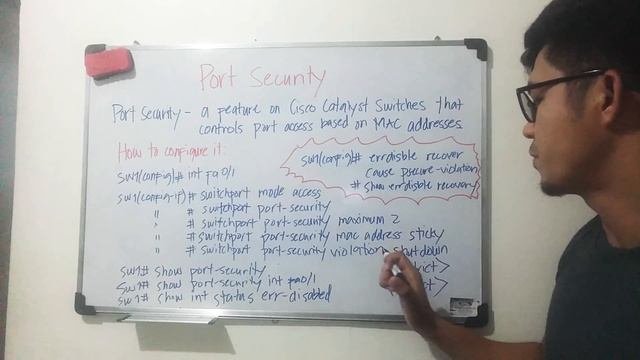 Port Security
Port security - a feature on Cisco Catalyst Switches that
controls port access based on MAC addresses
How to configure it:
SW1(config)# int fa0/1
SW1(config-if)# Switchport mode access
" # switchport port-security
" # switchport port-security maximum 2
" # switchport port-security mac address sticky
" # switchport port-security violation shutdown
SW1(config)# errdisble recover
cause psecure-violation
# show errdisble recovery
SW1# show port-security
SW1# show port-security int fa0/1
SW1# show int status err-disabled